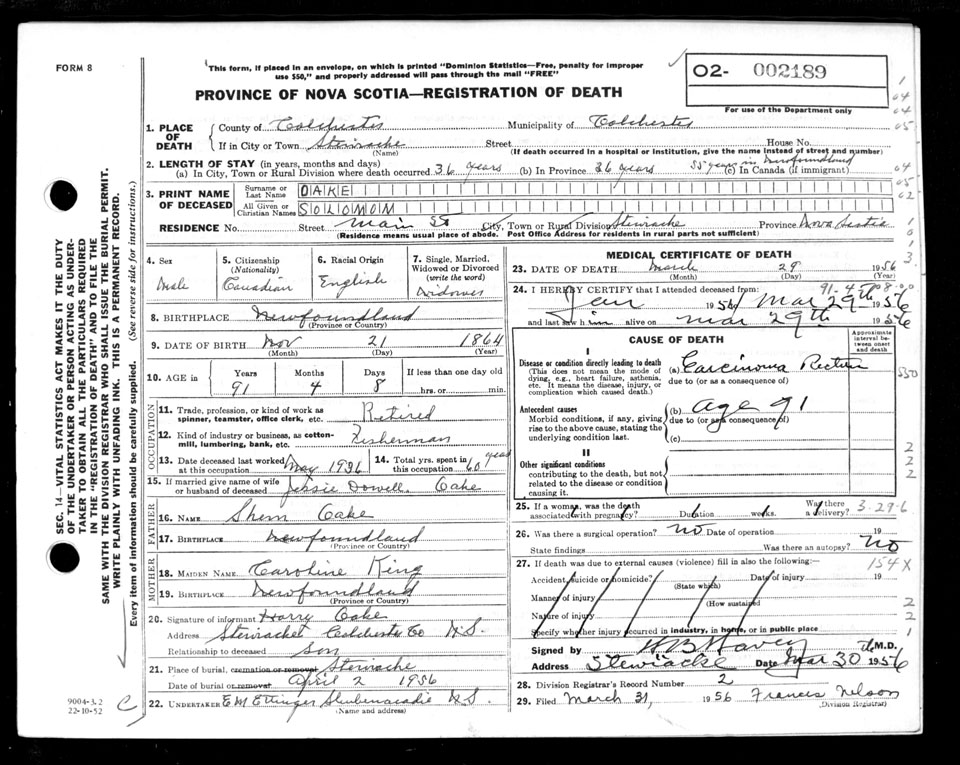 FORM 8
This form, if placed in an envelope, on which is printed "Dominion Statistics—Free, penalty for improper
use $50," and properly addressed will pass through the mail "FREE"
O2- 002189
For use of the Department only
PROVINCE OF NOVA SCOTIA—REGISTRATION OF DEATH
1. PLACE OF DEATH
County of Colchester Municipality of Colchester
If in City or Town Stewiacke Street House No.
(Name) (If death occurred in a hospital or institution, give the name instead of street and number)
2. LENGTH OF STAY (in years, months and days) 55 years in Newfoundland
(a) In City, Town or Rural Division where death occurred 36 years (b) In Province 36 years (c) In Canada (if immigrant)
3. PRINT NAME OF DECEASED
Surname or Last Name OAKE
All Given or Christian Names SOLOMOM
RESIDENCE No. Street Main St City, Town or Rural Division Stewiacke Province Nova Scotia
(Residence means usual place of abode. Post Office Address for residents in rural parts not sufficient)
4. Sex
Male
5. Citizenship
(Nationality)
Canadian
6. Racial Origin
English
7. Single, Married,
Widowed or Divorced
(write the word)
Widower
8. BIRTHPLACE Newfoundland
(Province or Country)
9. DATE OF BIRTH Nov 21 1864
(Month) (Day) (Year)
10. AGE in Years Months Days If less than one day old
91 4 8 hrs. or min.
OCCUPATION
11. Trade, profession, or kind of work as
spinner, teamster, office clerk, etc. Retired
12. Kind of industry or business, as cotton-
mill, lumbering, bank, etc. Fisherman
13. Date deceased last worked
at this occupation May 1936
14. Total yrs. spent in
this occupation 60 years
15. If married give name of wife
or husband of deceased Jessie Dowell Oake
FATHER
16. NAME Shem Oake
17. BIRTHPLACE Newfoundland
(Province or Country)
MOTHER
18. MAIDEN NAME Caroline King
19. BIRTHPLACE Newfoundland
(Province or Country)
20. Signature of informant Harry Oake
Address Stewiacke Colchester Co N.S.
Relationship to deceased son
21. Place of burial, cremation or removal Stewiacke
Date of burial or removal April 2 1956
22. UNDERTAKER E M Ettinger Shubenacadie N.S.
(Name and address)
MEDICAL CERTIFICATE OF DEATH
23. DATE OF DEATH March 29 1956
(Month) (Day) (Year)
24. I HEREBY CERTIFY that I attended deceased from:
Jan 1956 Mar 29th 1956
and last saw him alive on Mar 29th 1956
CAUSE OF DEATH
Approximate
interval be-
tween onset
and death
I
Disease or condition directly leading to death
(This does not mean the mode of
dying, e.g., heart failure, asthenia,
etc. It means the disease, injury, or
complication which caused death.)
(a) Carcinoma Rectum
due to (or as a consequence of)
Antecedent causes
Morbid conditions, if any, giving
rise to the above cause, stating the
underlying condition last.
(b) age 91
due to (or as a consequence of)
(c)
II
Other significant conditions
contributing to the death, but not
related to the disease or condition
causing it.
25. If a woman, was the death Was there
associated with pregnancy? Duration weeks. a delivery? 3-29-6
26. Was there a surgical operation? No Date of operation 19
State findings Was there an autopsy? No
27. If death was due to external causes (violence) fill in also the following:— 154X
Accident, suicide or homicide? Date of injury 19
(State which)
Manner of injury
(How sustained)
Nature of injury
Specify whether injury occurred in industry, in home, or in public place
Signed by M.D.
Address Stewiacke Date Mar 30 1956
28. Division Registrar's Record Number 2
29. Filed March 31, 1956 Francis Nelson
(Division Registrar)
SEC. 14—VITAL STATISTICS ACT MAKES IT THE DUTY
OF THE UNDERTAKER OR PERSON ACTING AS UNDER-
TAKER TO OBTAIN ALL THE PARTICULARS REQUIRED
IN THE "REGISTRATION OF DEATH" AND TO FILE THE
SAME WITH THE DIVISION REGISTRAR WHO SHALL ISSUE THE BURIAL PERMIT.
WRITE PLAINLY WITH UNFADING INK. THIS IS A PERMANENT RECORD.
Every item of information should be carefully supplied. (See reverse side for instructions.)
9004-3.2
22-10-52